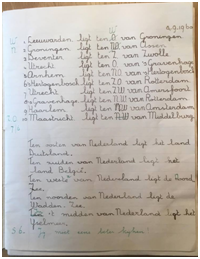 1 Leeuwarden ligt ten W van Groningen
2 Groningen ligt ten van Assen
3 Deventer ligt ten Z van Zwolle
4 Utrecht ligt ten O van 's Gravenhage
5 Arnhem ligt ten N.O. van 's Hertogenbosch
6 's Hertogenbosch ligt ten Z.O van Rotterdam
7 Utrecht ligt ten van Amersfoort
8 's Gravenhage ligt ten N.W van Rotterdam
9 Haarlem ligt ten van Amsterdam
10 Maastricht ligt ten van Middelburg
Ten oosten van Nederland ligt het land
Duitsland.
Ten zuiden van Nederland ligt het
land België.
Ten westen van Nederland ligt de Noord
Zee.
Ten noorden van Nederland ligt de
Wadden Zee.
midden van Nederland ligt het